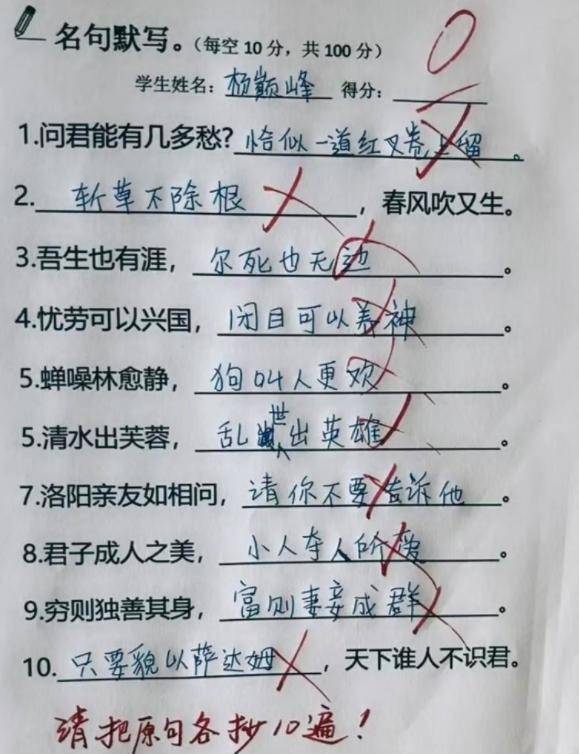 名句默写。(每空10分，共100分)
学生姓名：杨巅峰 得分：0
1.问君能有几多愁?恰似一道红叉卷上留。
2.斩草不除根，春风吹又生。
3.吾生也有涯，尔死也无边。
4.忧劳可以兴国，闭目可以养神。
5.蝉噪林愈静，狗叫人更欢。
5.清水出芙蓉，乱世出英雄。
7.洛阳亲友如相问，请你不要告诉他。
8.君子成人之美，小人夺人所爱。
9.穷则独善其身，富则妻妾成群。
10.只要貌似萨达姆，天下谁人不识君。
请把原句各抄10遍！